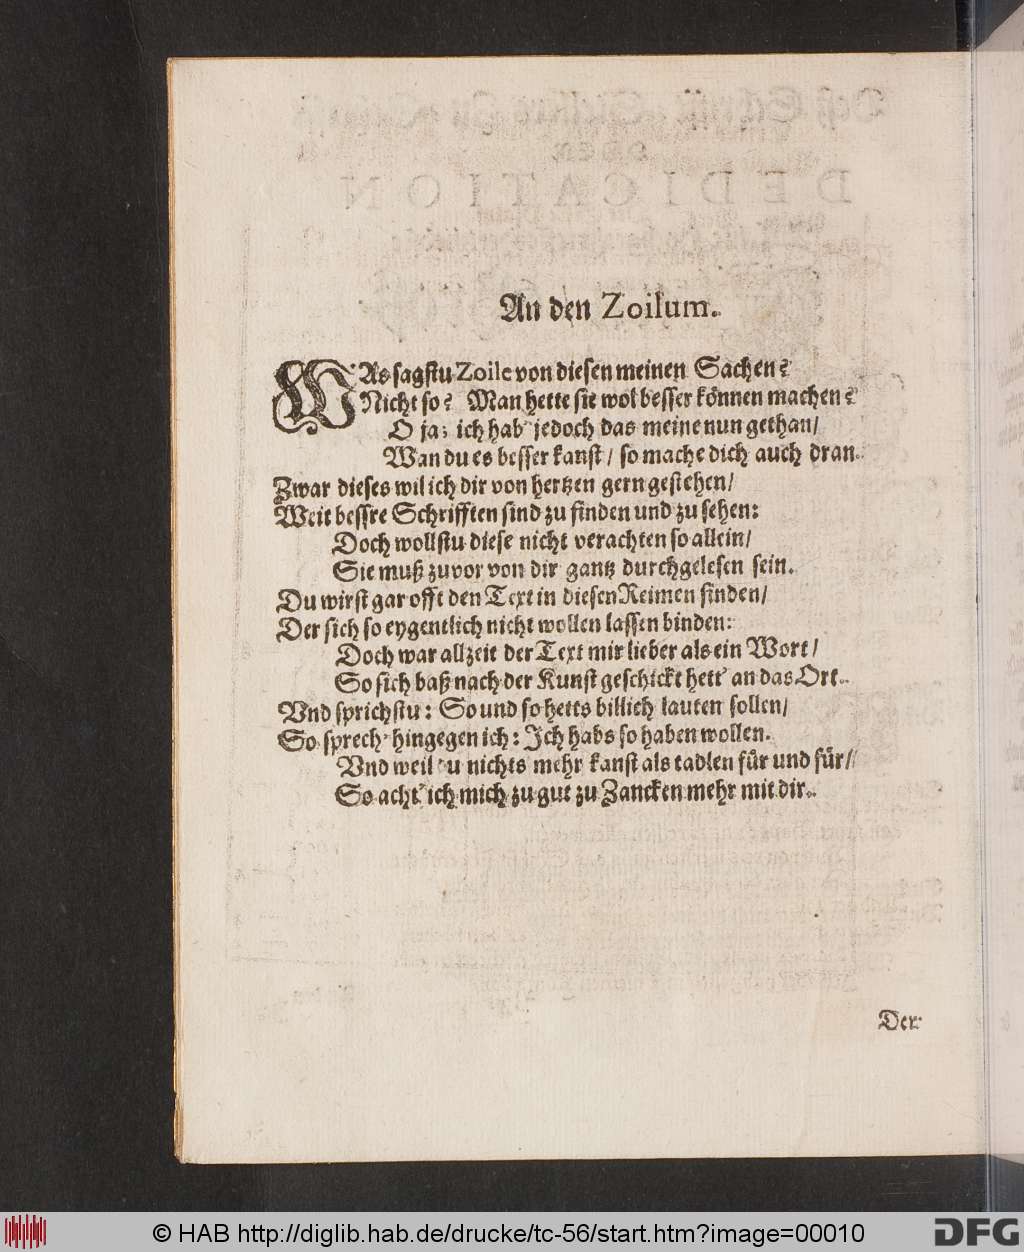 An den Zoilum.
WAs sagstu Zoile von diesen meinen Sachen?
Nicht so? Man hette sie wol besser können machen?
O ja; ich hab' jedoch das meine nun gethan/
Wan du es besser kanst/ so mache dich auch dran.
Zwar dieses wil ich dir von hertzen gern gestehen/
Weit bessre Schrifften sind zu finden und zu sehen:
Doch wollstu diese nicht verachten so allein/
Sie muß zuvor von dir gantz durchgelesen sein.
Du wirst gar offt den Text in diesen Reimen finden/
Der sich so eygentlich nicht wollen lassen binden:
Doch war allzeit der Text mir lieber als ein Wort/
So sich baß nach der Kunst geschickt hett' an das Ort.
Vnd sprichstu: So und so hetts billich lauten sollen/
So sprech' hingegen ich: Jch habs so haben wollen.
Vnd weil du nichts mehr kanst als tadlen für und für/
So acht' ich mich zu gut zu Zancken mehr mit dir.
Der
© HAB http://diglib.hab.de/drucke/tc-56/start.htm?image=00010
DFG